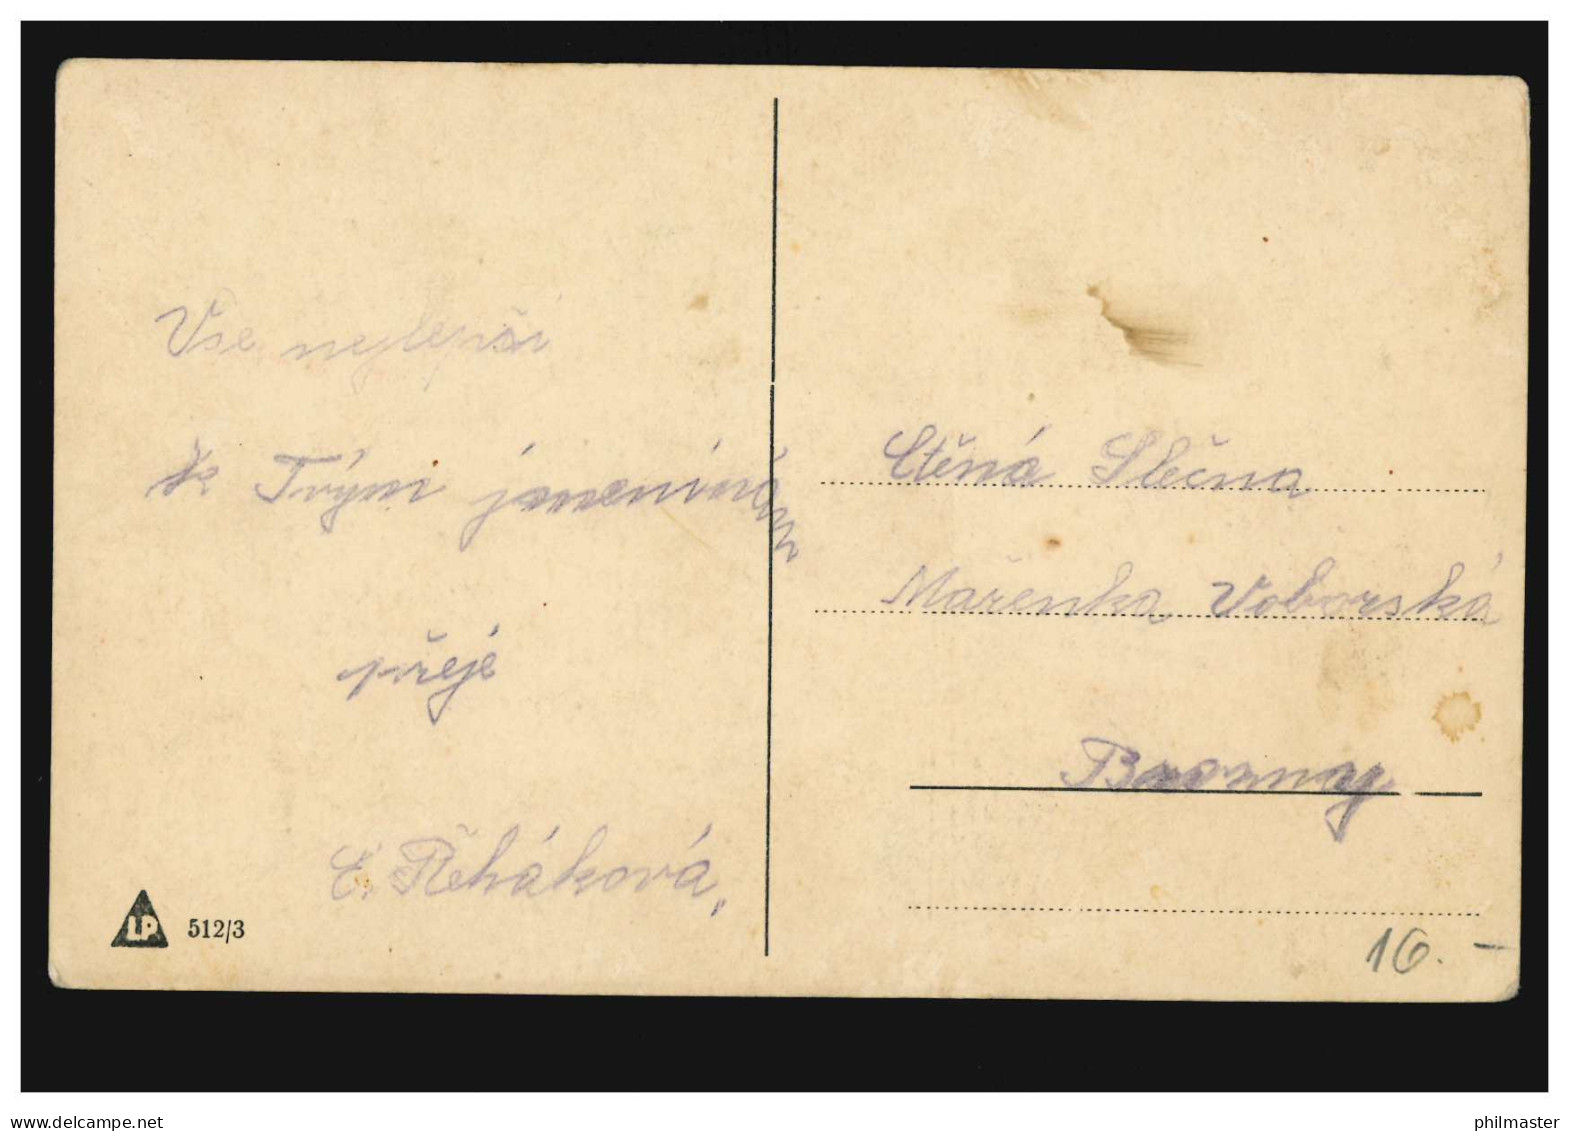 Vse nejlepší
k Tvým jmeninám
přeje
E. Řeháková,
LP 512/3
Ctěná Slečna
Mařenka Voborská
16.-
delcampe.net
philmaster